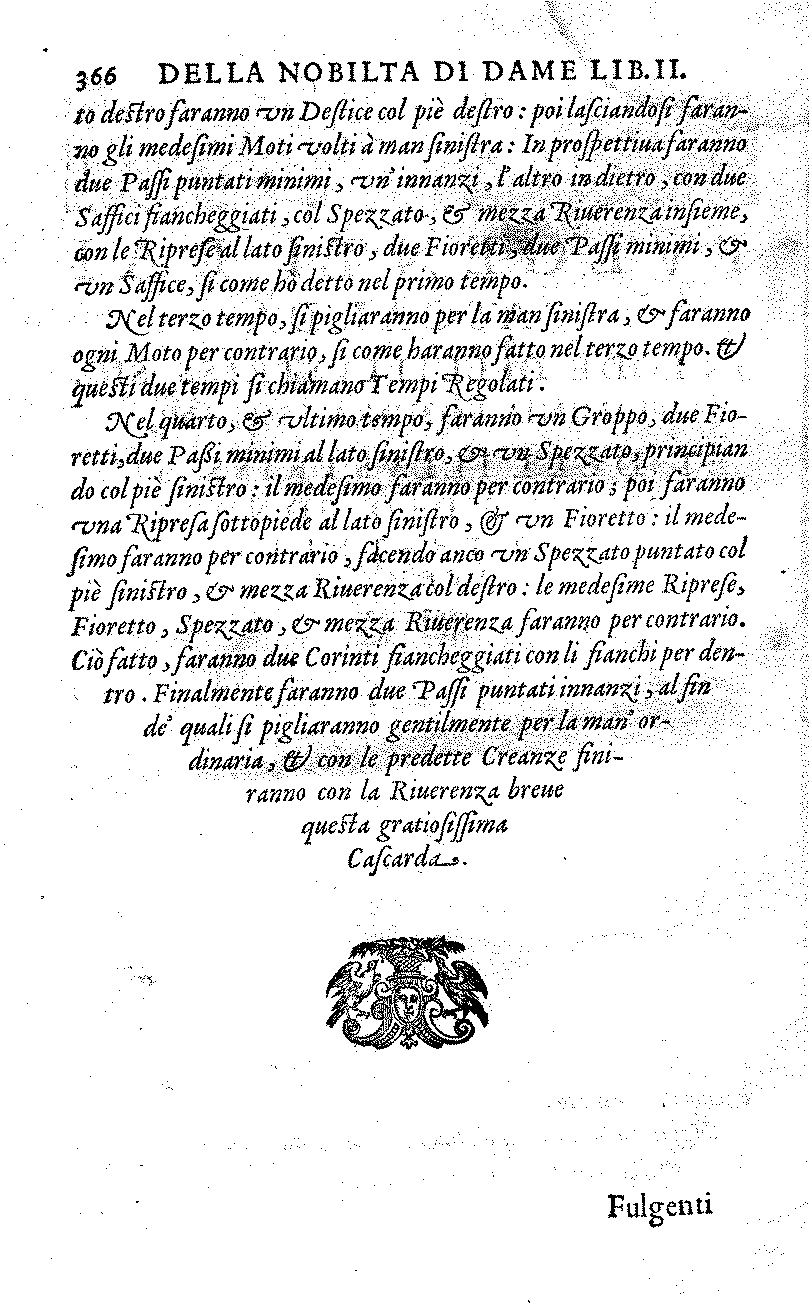 366 DELLA NOBILTA DI DAME LIB.II.
to deſtro faranno vn Deſtice col piè deſtro : poi laſciandoſi faran-
no gli medeſimi Moti volti à man ſiniſtra : In proſpettiua faranno
due Paſſi puntati minimi , vn' innanzi , l' altro in dietro , con due
Saffici fiancheggiati , col Spezzato , & mezza Riuerenza inſieme,
con le Ripreſe al lato ſiniſtro , due Fioretti, due Paſſi minimi , &
vn Saffice, ſi come hò detto nel primo tempo.
Nel terzo tempo, ſi pigliaranno per la man ſiniſtra , & faranno
ogni Moto per contrario, ſi come haranno fatto nel terzo tempo. &
queſti due tempi ſi chiamano Tempi Regolati .
Nel quarto, & vltimo tempo, faranno vn Groppo, due Fio-
retti,due Paßi minimi al lato ſiniſtro, & vn Spezzato, principian
do col piè ſiniſtro : il medeſimo faranno per contrario ; poi faranno
vna Ripreſa ſottopiede al lato ſiniſtro , & vn Fioretto : il mede-
ſimo faranno per contrario , facendo anco vn Spezzato puntato col
piè ſiniſtro , & mezza Riuerenza col deſtro : le medeſime Ripreſe,
Fioretto , Spezzato , & mezza Riuerenza faranno per contrario.
Ciò fatto , faranno due Corinti fiancheggiati con li fianchi per den-
tro . Finalmente faranno due Paſſi puntati innanzi , al fin
de' quali ſi pigliaranno gentilmente per la man' or-
dinaria, & con le predette Creanze fini-
ranno con la Riuerenza breue
queſta gratioſiſſima
Caſcarda.
Fulgenti